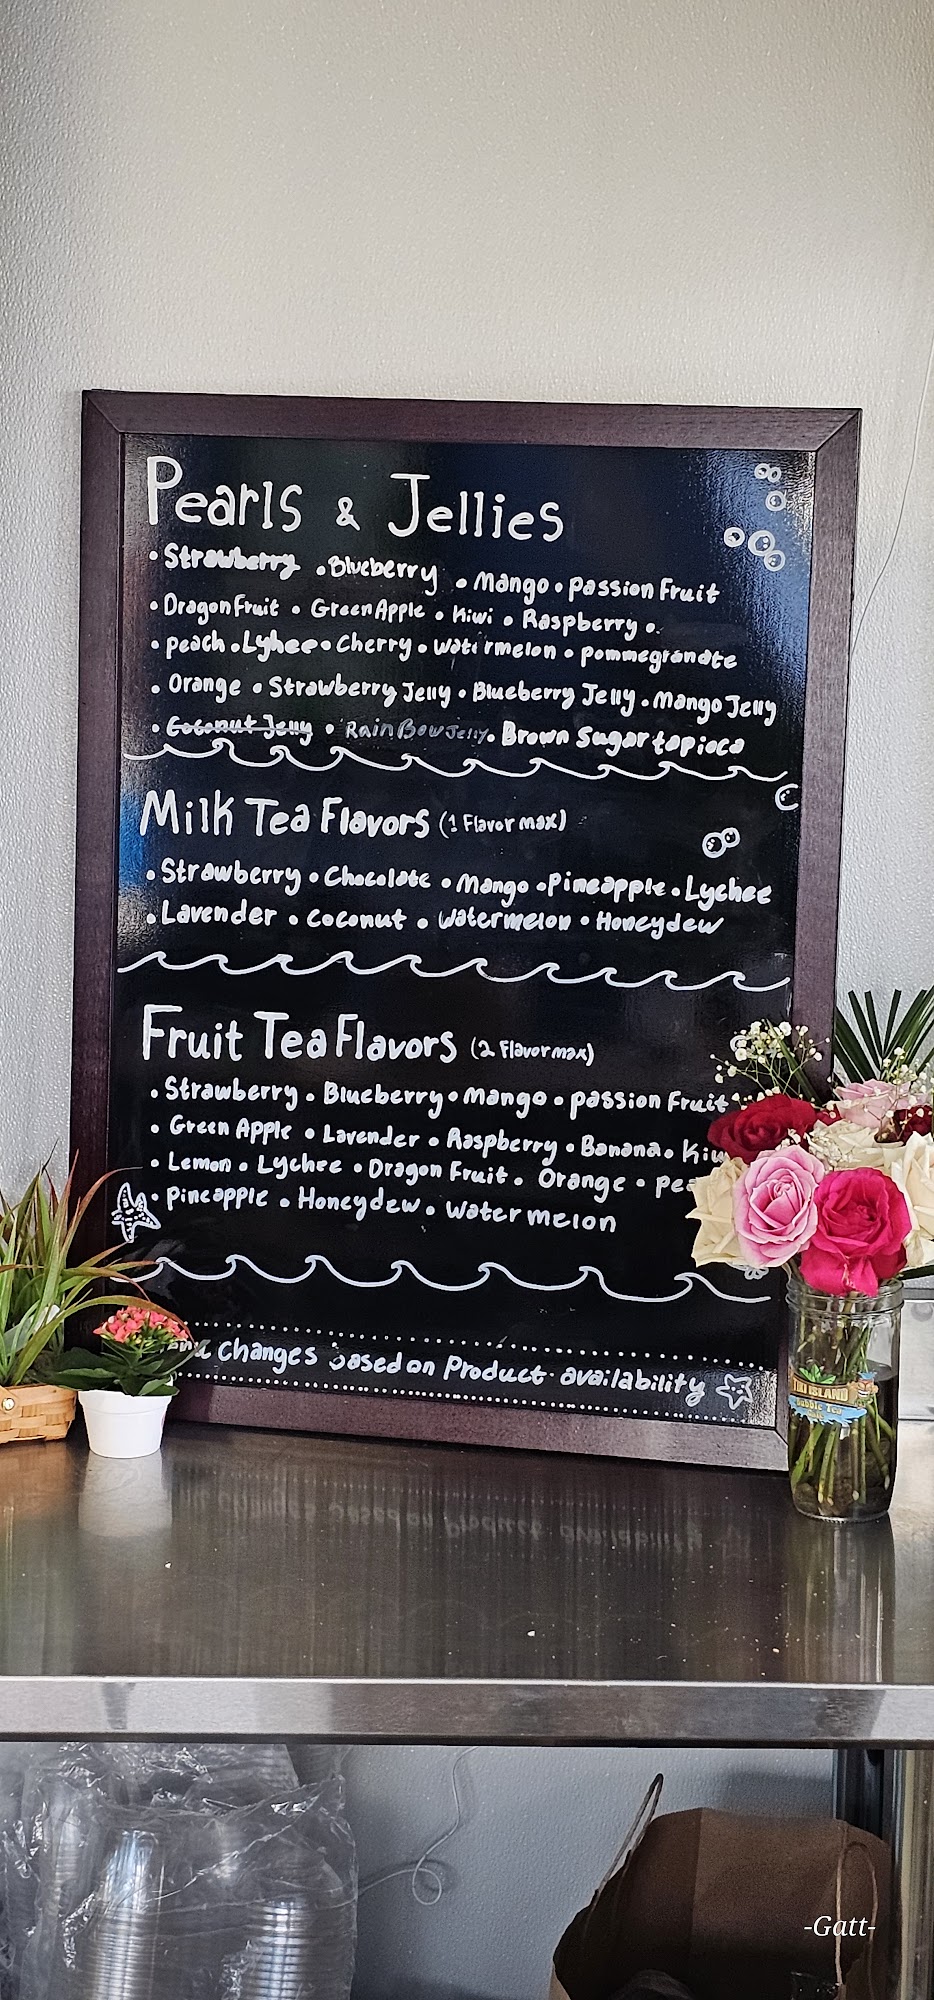 Pearls & Jellies
• Strawberry • Blueberry • Mango • Passion Fruit
• DragonFruit • Green Apple • Kiwi • Raspberry •
• Peach • Lyhee • Cherry • Watermelon • Pommegrandte
• Orange • Strawberry Jelly • Blueberry Jelly • Mango Jelly
• Coconut Jelly • RainBow Jelly • Brown Sugar tapioca
Milk Tea Flavors (1 Flavor max)
• Strawberry • Chocolate • Mango • Pineapple • Lychee
• Lavender • Coconut • Watermelon • Honeydew
Fruit Tea Flavors (2 Flavor max)
• Strawberry • Blueberry • Mango • Passion Fruit
• Green Apple • Lavender • Raspberry • Banana •
• Lemon • Lychee • Dragon Fruit • Orange •
• Pineapple • Honeydew • Watermelon
Changes based on Product availability
ISLAND
Bubble Tea
-Gatt-